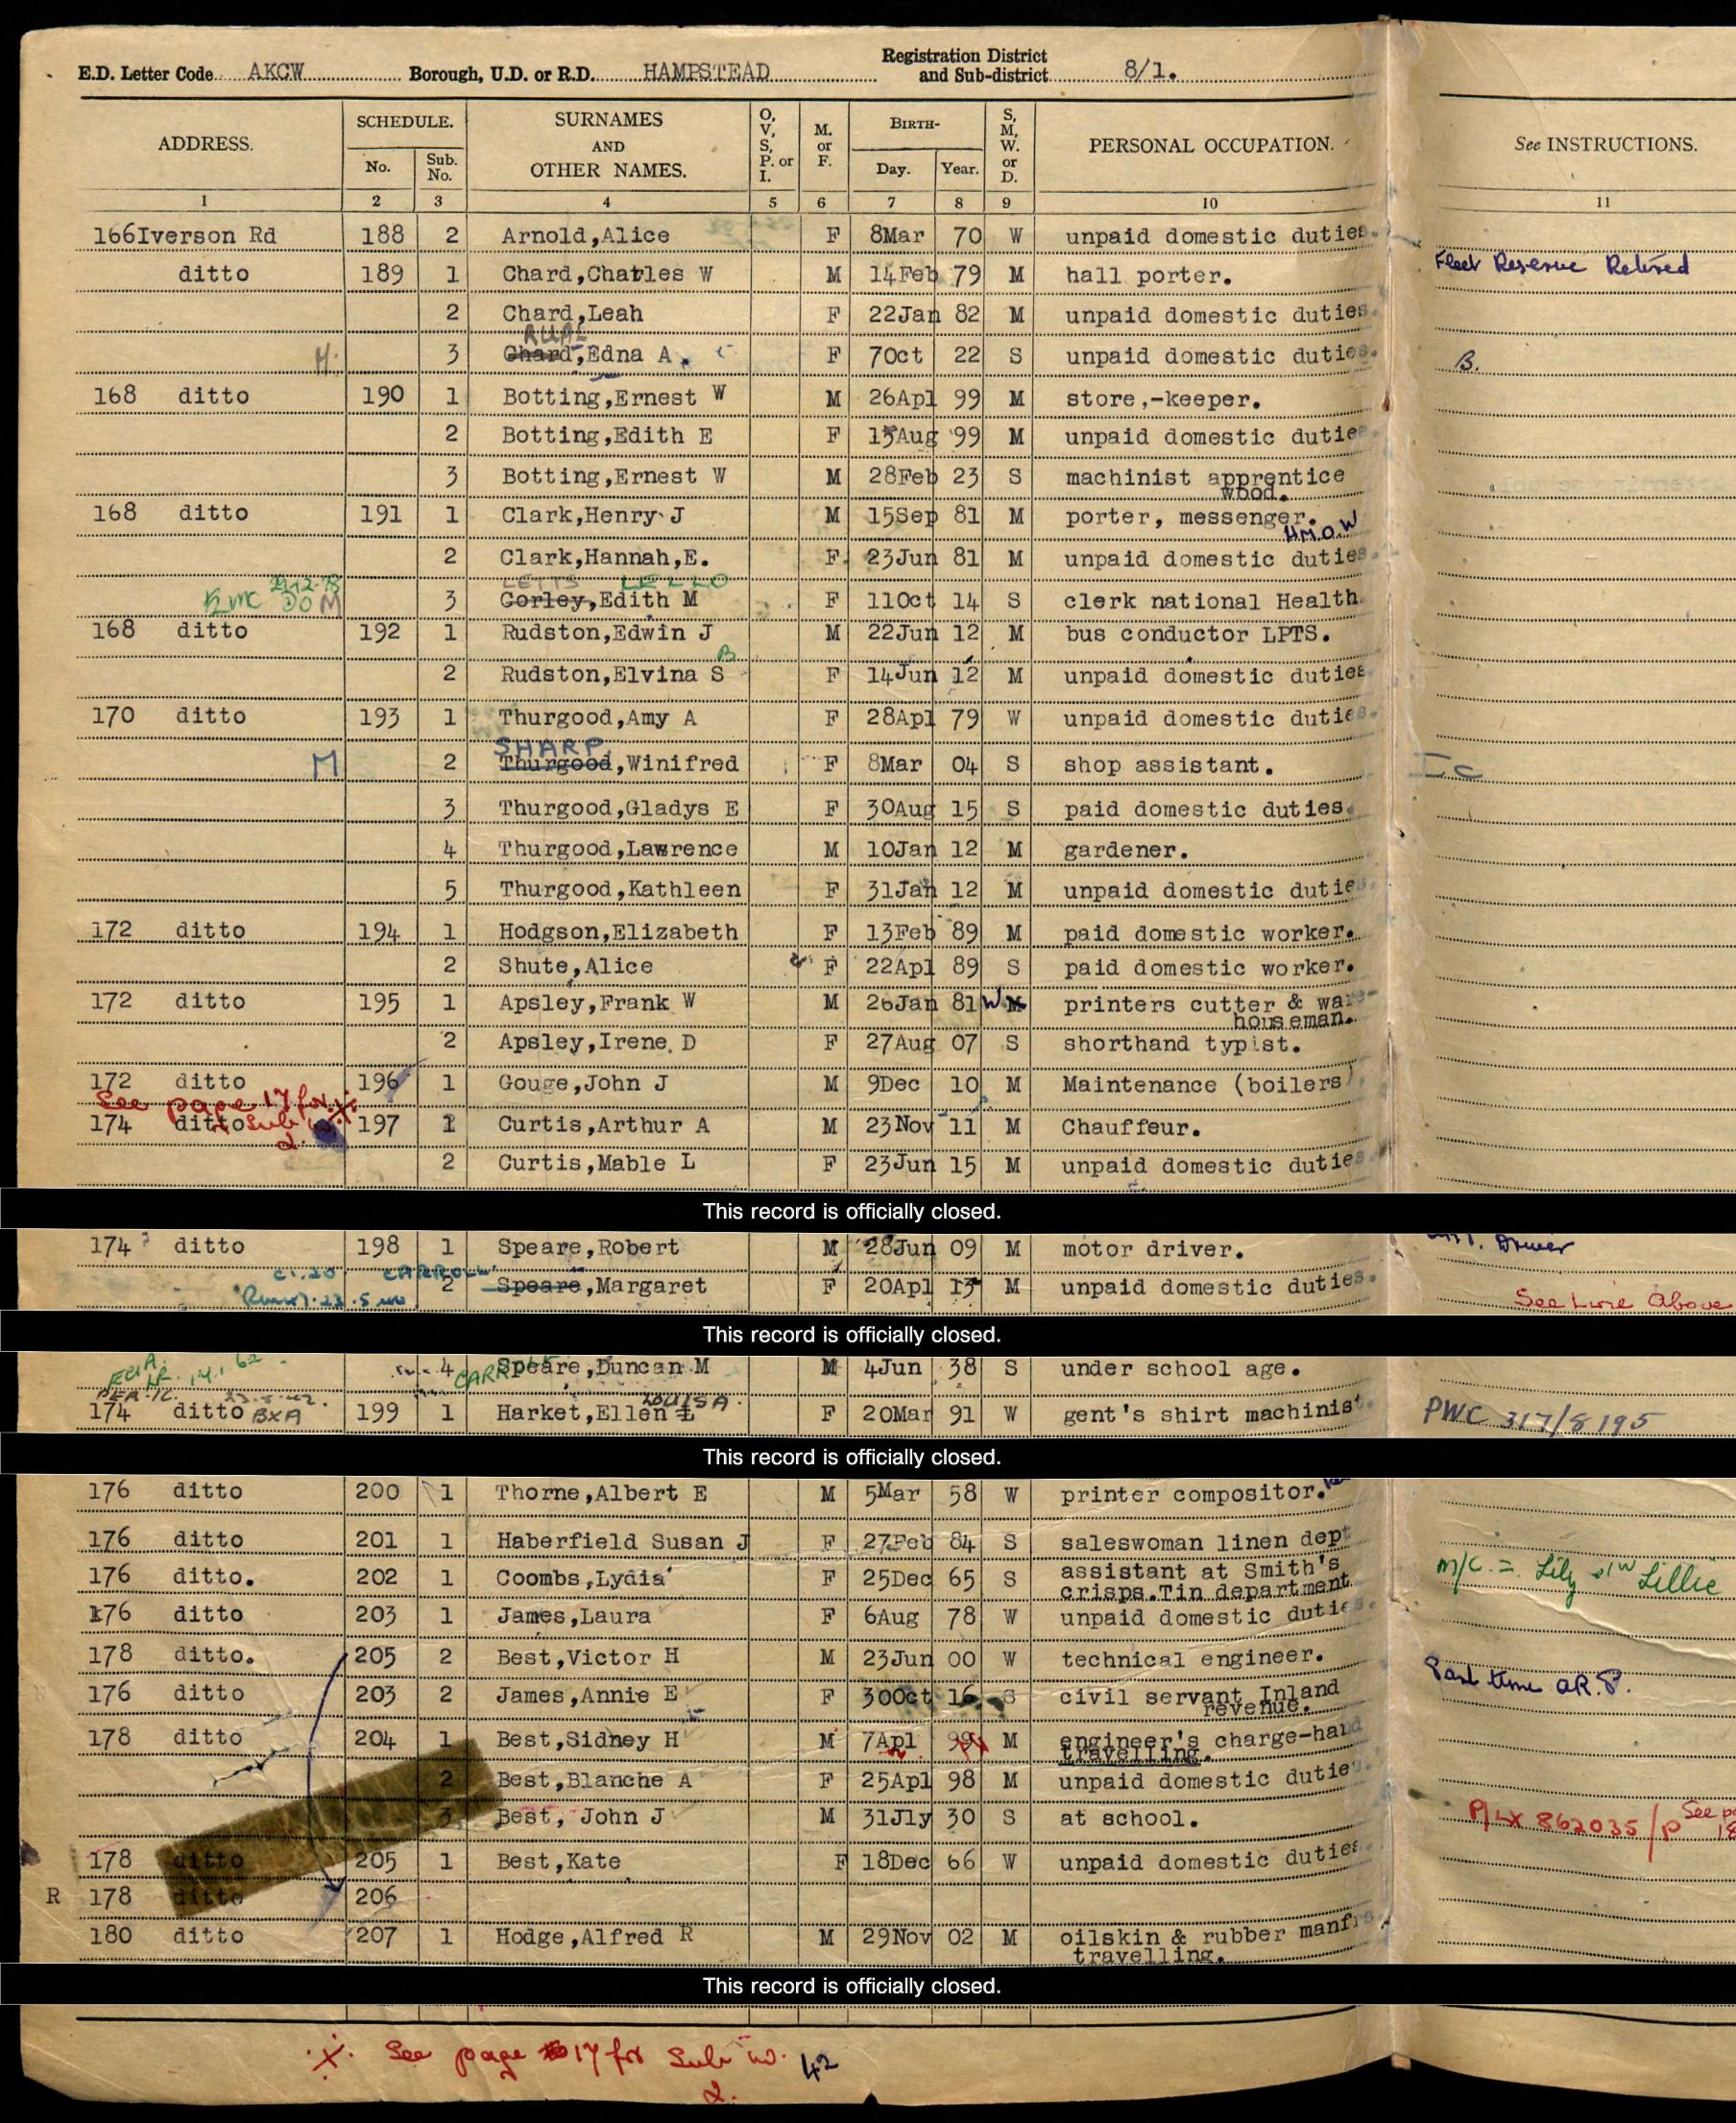 E.D. Letter Code AKCW Borough, U.D. or R.D. HAMPSTEAD Registration District and Sub-district 8/1.
ADDRESS. SCHEDULE. No. Sub. No. SURNAMES AND OTHER NAMES. O, V, S, P. or I. M. or F. BIRTH- Day. Year. S, M, W. or D. PERSONAL OCCUPATION. See INSTRUCTIONS.
1 2 3 4 5 6 7 8 9 10 11
166 Iverson Rd 188 2 Arnold,Alice F 8Mar 70 W unpaid domestic duties.
ditto 189 1 Chard,Charles W M 14Feb 79 M hall porter. Fleet Reserve Retired
2 Chard,Leah F 22Jan 82 M unpaid domestic duties.
M. 3 Chard,Edna A. F 7Oct 22 S unpaid domestic duties. B.
168 ditto 190 1 Botting,Ernest W M 26Apl 99 M store,-keeper.
2 Botting,Edith E F 15Aug 99 M unpaid domestic duties
3 Botting,Ernest W M 28Feb 23 S machinist apprentice
wood.
168 ditto 191 1 Clark,Henry J M 15Sep 81 M porter, messenger.
H.M.O.W
2 Clark,Hannah,E. F 23Jun 81 M unpaid domestic duties.
LETTS LELLO
M 3 Corley,Edith M F 11Oct 14 S clerk national Health
168 ditto 192 1 Rudston,Edwin J M 22Jun 12 M bus conductor LPTS.
B
2 Rudston,Elvina S F 14Jun 12 M unpaid domestic duties
170 ditto 193 1 Thurgood,Amy A F 28Apl 79 W unpaid domestic duties.
SHARP
M 2 Thurgood,Winifred F 8Mar 04 S shop assistant.
3 Thurgood,Gladys E F 30Aug 15 S paid domestic duties.
4 Thurgood,Lawrence M 10Jan 12 M gardener.
5 Thurgood,Kathleen F 31Jan 12 M unpaid domestic duties
172 ditto 194 1 Hodgson,Elizabeth F 13Feb 89 M paid domestic worker.
2 Shute,Alice F 22Apl 89 S paid domestic worker.
172 ditto 195 1 Apsley,Frank W M 26Jan 81 W M printers cutter & ware-
houseman.
2 Apsley,Irene D F 27Aug 07 S shorthand typist.
172 ditto 196 1 Gouge,John J M 9Dec 10 M Maintenance (boilers)
See page 17 for
174 ditto Sub no. 2. 197 1 Curtis,Arthur A M 23Nov 11 M Chauffeur.
2 Curtis,Mable L F 23Jun 15 M unpaid domestic duties
This record is officially closed.
174 ditto 198 1 Speare,Robert M 28Jun 09 M motor driver. Driver
CARROLL
2 Speare,Margaret F 20Apl 13 M unpaid domestic duties. See Line Above
This record is officially closed.
4 Speare,Duncan M M 4Jun 38 S under school age.
LOUISA.
174 ditto BXA 199 1 Harket,Ellen L F 20Mar 91 W gent's shirt machinist. PWC 317/8195
This record is officially closed.
176 ditto 200 1 Thorne,Albert E M 5Mar 58 W printer compositor.
176 ditto 201 1 Haberfield Susan J F 27Feb 84 S saleswoman linen dept
176 ditto. 202 1 Coombs,Lydia F 25Dec 65 S assistant at Smith's m/c = Lily Lillie
crisps.Tin department
176 ditto 203 1 James,Laura F 6Aug 78 W unpaid domestic duties.
178 ditto. 205 2 Best,Victor H M 23Jun 00 W technical engineer.
176 ditto 203 2 James,Annie E F 30Oct 16 S civil servant Inland Part time A.R.P.
revenue.
178 ditto 204 1 Best,Sidney H M 7Apl 99 M engineer's charge-hand
travelling.
2 Best,Blanche A F 25Apl 98 M unpaid domestic duties
3 Best, John J M 31Jly 30 S at school. 862035/P See
178 ditto 205 1 Best,Kate F 18Dec 66 W unpaid domestic duties
R 178 ditto 206
180 ditto 207 1 Hodge,Alfred R M 29Nov 02 M oilskin & rubber manfrs
travelling.
This record is officially closed.
See page 17 for Sub no. 42
2.